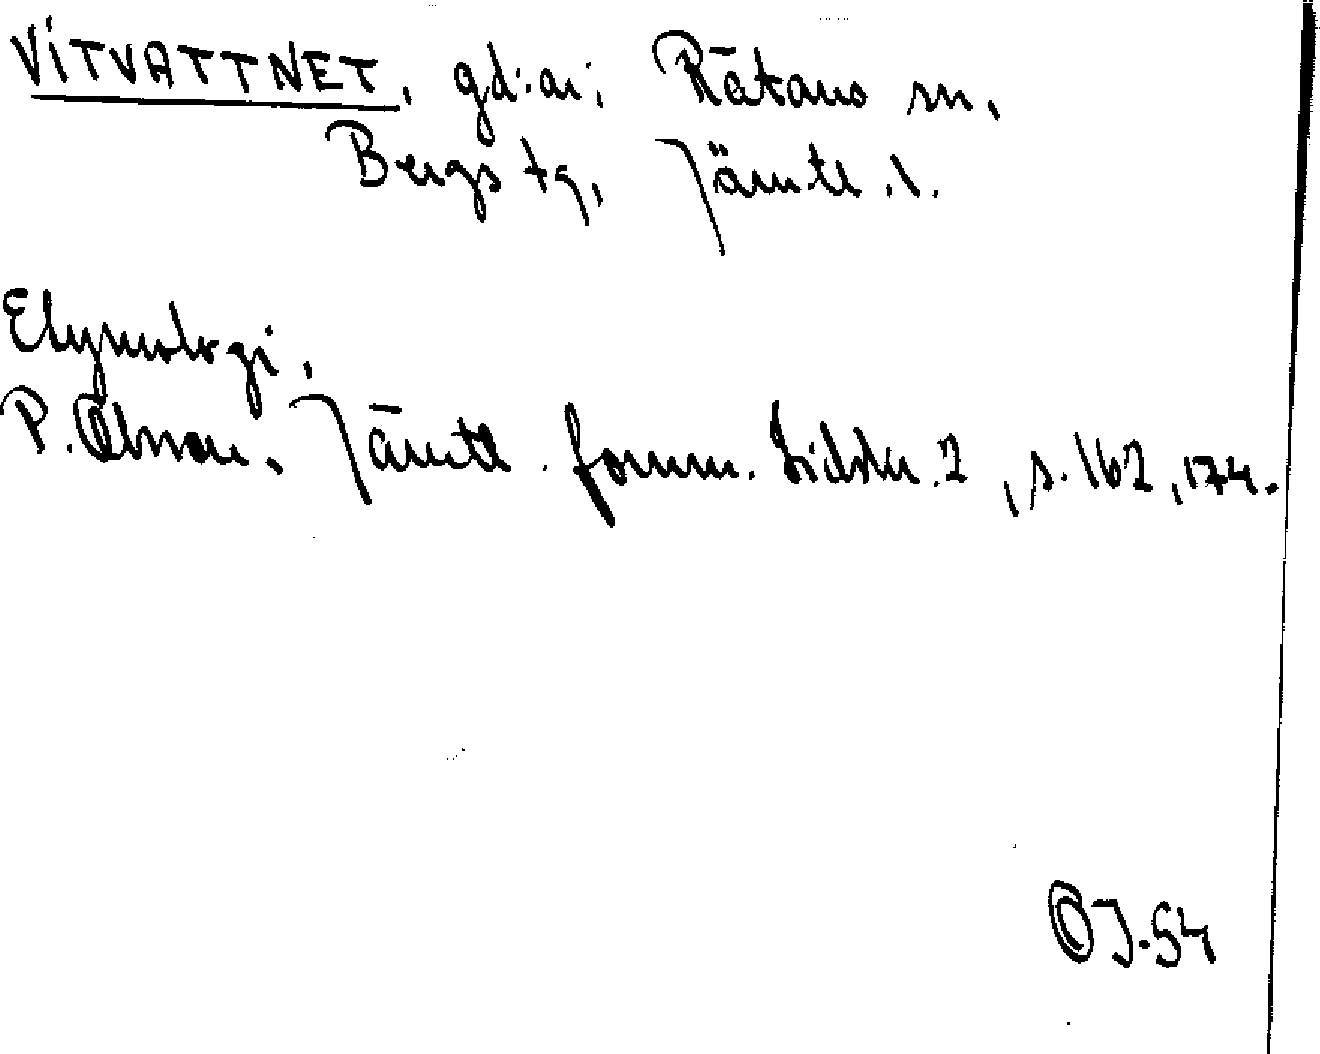 VITVATTNET, gd:ar i Rätans sn,
Bergs tg, Jämtl. l.
Etymologi.
P. Olsson. Jämtl. fornm. tidskr. 2, s. 162, 174.
OJ-54